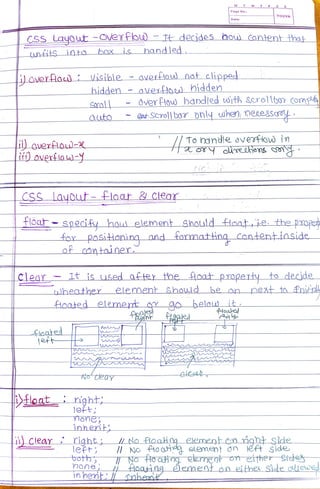 CSS Layout - Overflow - It decides how content that
unfits into box is handled.
i) overflow : visible - overflow not clipped
hidden - overflow hidden
scroll - overflow handled with scrollbar
auto - scrollbar only when necessary.
ii) overflow-x // To handle overflow in
iii) overflow-y x or y directions only.
CSS Layout - float & clear
float - specify how element should float, i.e. the
for positioning and formatting content inside
of container.
Clear - It is used after the float property to decide
wheather element should be on next to
floated element or go below it.
floated left
floated right
floated left
floated right
No clear
clear.
i) float : right;
left;
none;
inherit;
ii) clear : right; // No floating element on right side
left; // No floating element on left side
both; // No floating element on either sides
none; // floating element on either side allowed
inherit; // Inherit